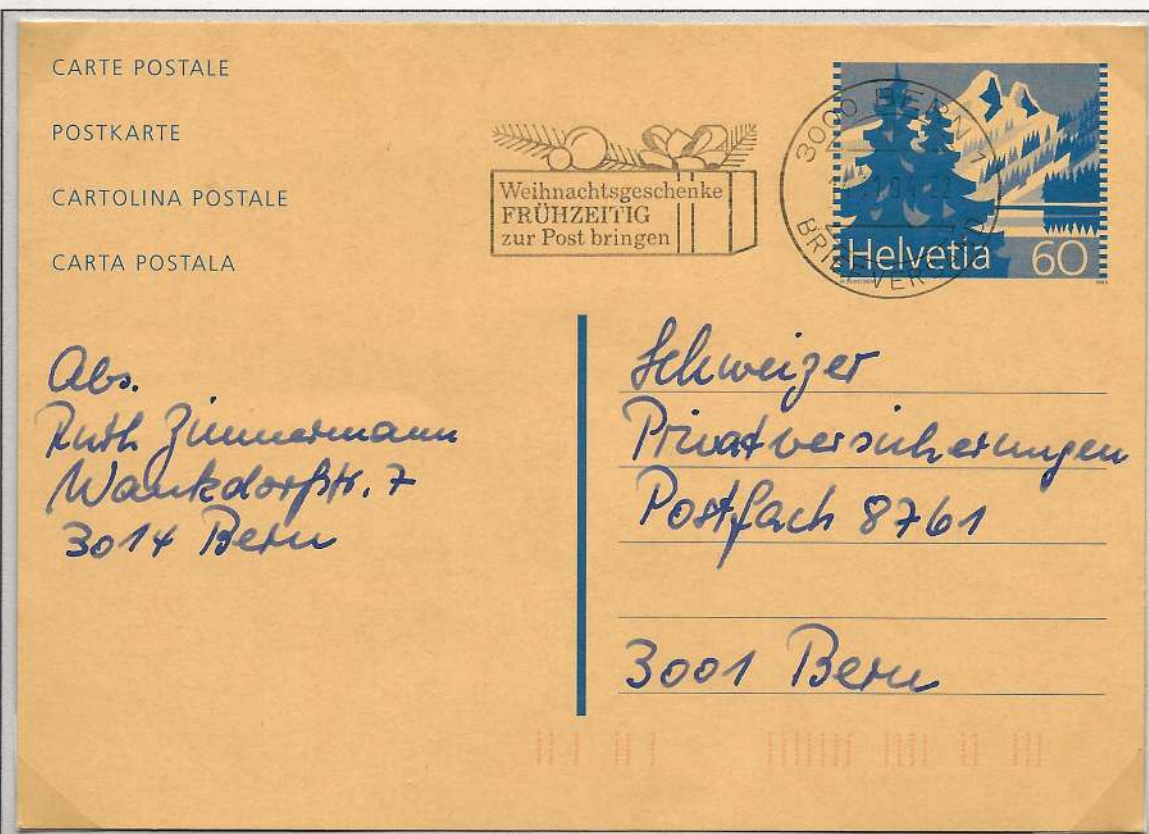 CARTE POSTALE
POSTKARTE
CARTOLINA POSTALE
CARTA POSTALA
Weihnachtsgeschenke
FRÜHZEITIG
zur Post bringen
3000 BERN
Helvetia 60
Abs.
Ruth Zimmermann
Wankdorfstr. 7
3014 Bern
Schweizer
Privatversicherungen
Postfach 8761
3001 Bern